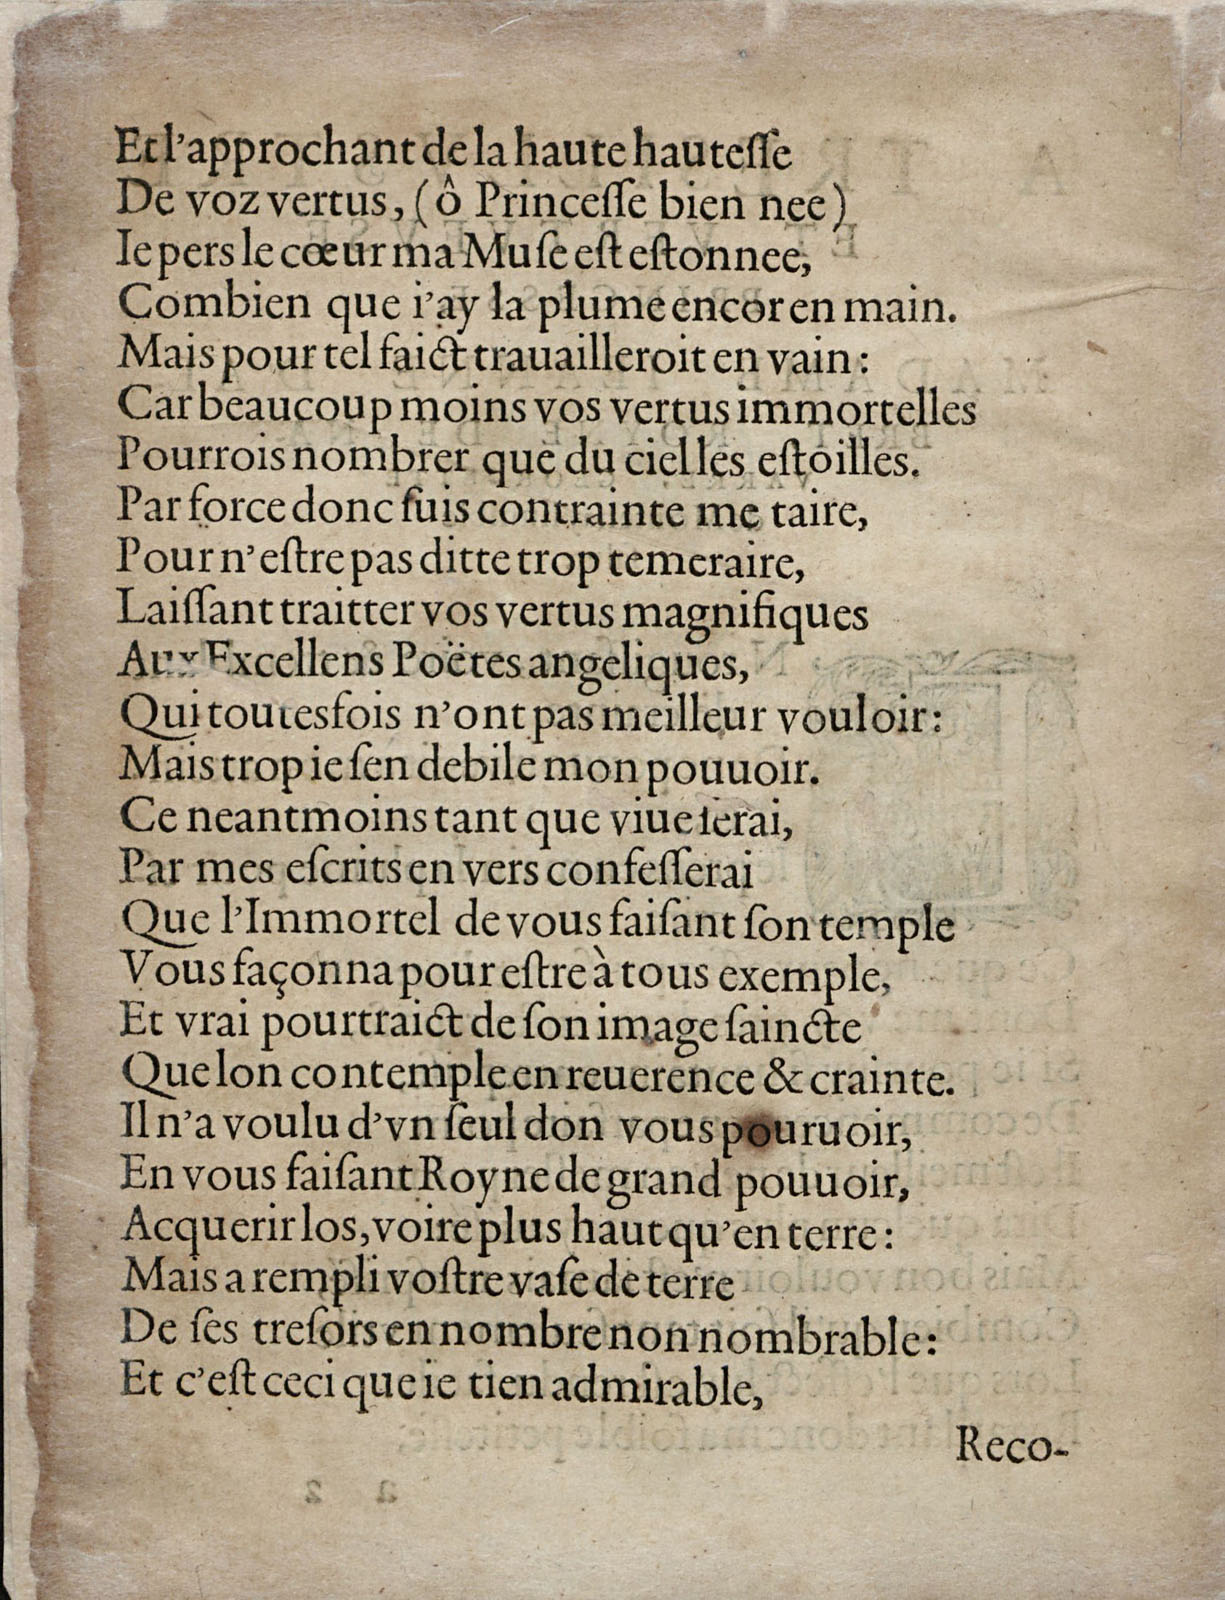 Et l'approchant de la haute hauteſſe
De voz vertus, (ô Princeſſe bien nee)
Ie pers le cœur ma Muſe eſt eſtonnee,
Combien que i'ay la plume encor en main.
Mais pour tel faict trauailleroit en vain:
Car beaucoup moins vos vertus immortelles
Pourrois nombrer que du ciel les eſtoilles.
Par force donc ſuis contrainte me taire,
Pour n'eſtre pas ditte trop temeraire,
Laiſſant traitter vos vertus magnifiques
Aux Excellens Poëtes angeliques,
Qui toutesfois n'ont pas meilleur vouloir:
Mais trop ie ſen debile mon pouuoir.
Ce neantmoins tant que viue ſerai,
Par mes eſcrits en vers confeſſerai
Que l'Immortel de vous faiſant ſon temple
Vous façonna pour eſtre à tous exemple,
Et vrai pourtraict de ſon image ſaincte
Que lon contemple en reuerence & crainte.
Il n'a voulu d'vn ſeul don vous pouruoir,
En vous faiſant Royne de grand pouuoir,
Acquerir los, voire plus haut qu'en terre:
Mais a rempli voſtre vaſe de terre
De ſes treſors en nombre non nombrable:
Et c'eſt ceci que ie tien admirable,
Reco-